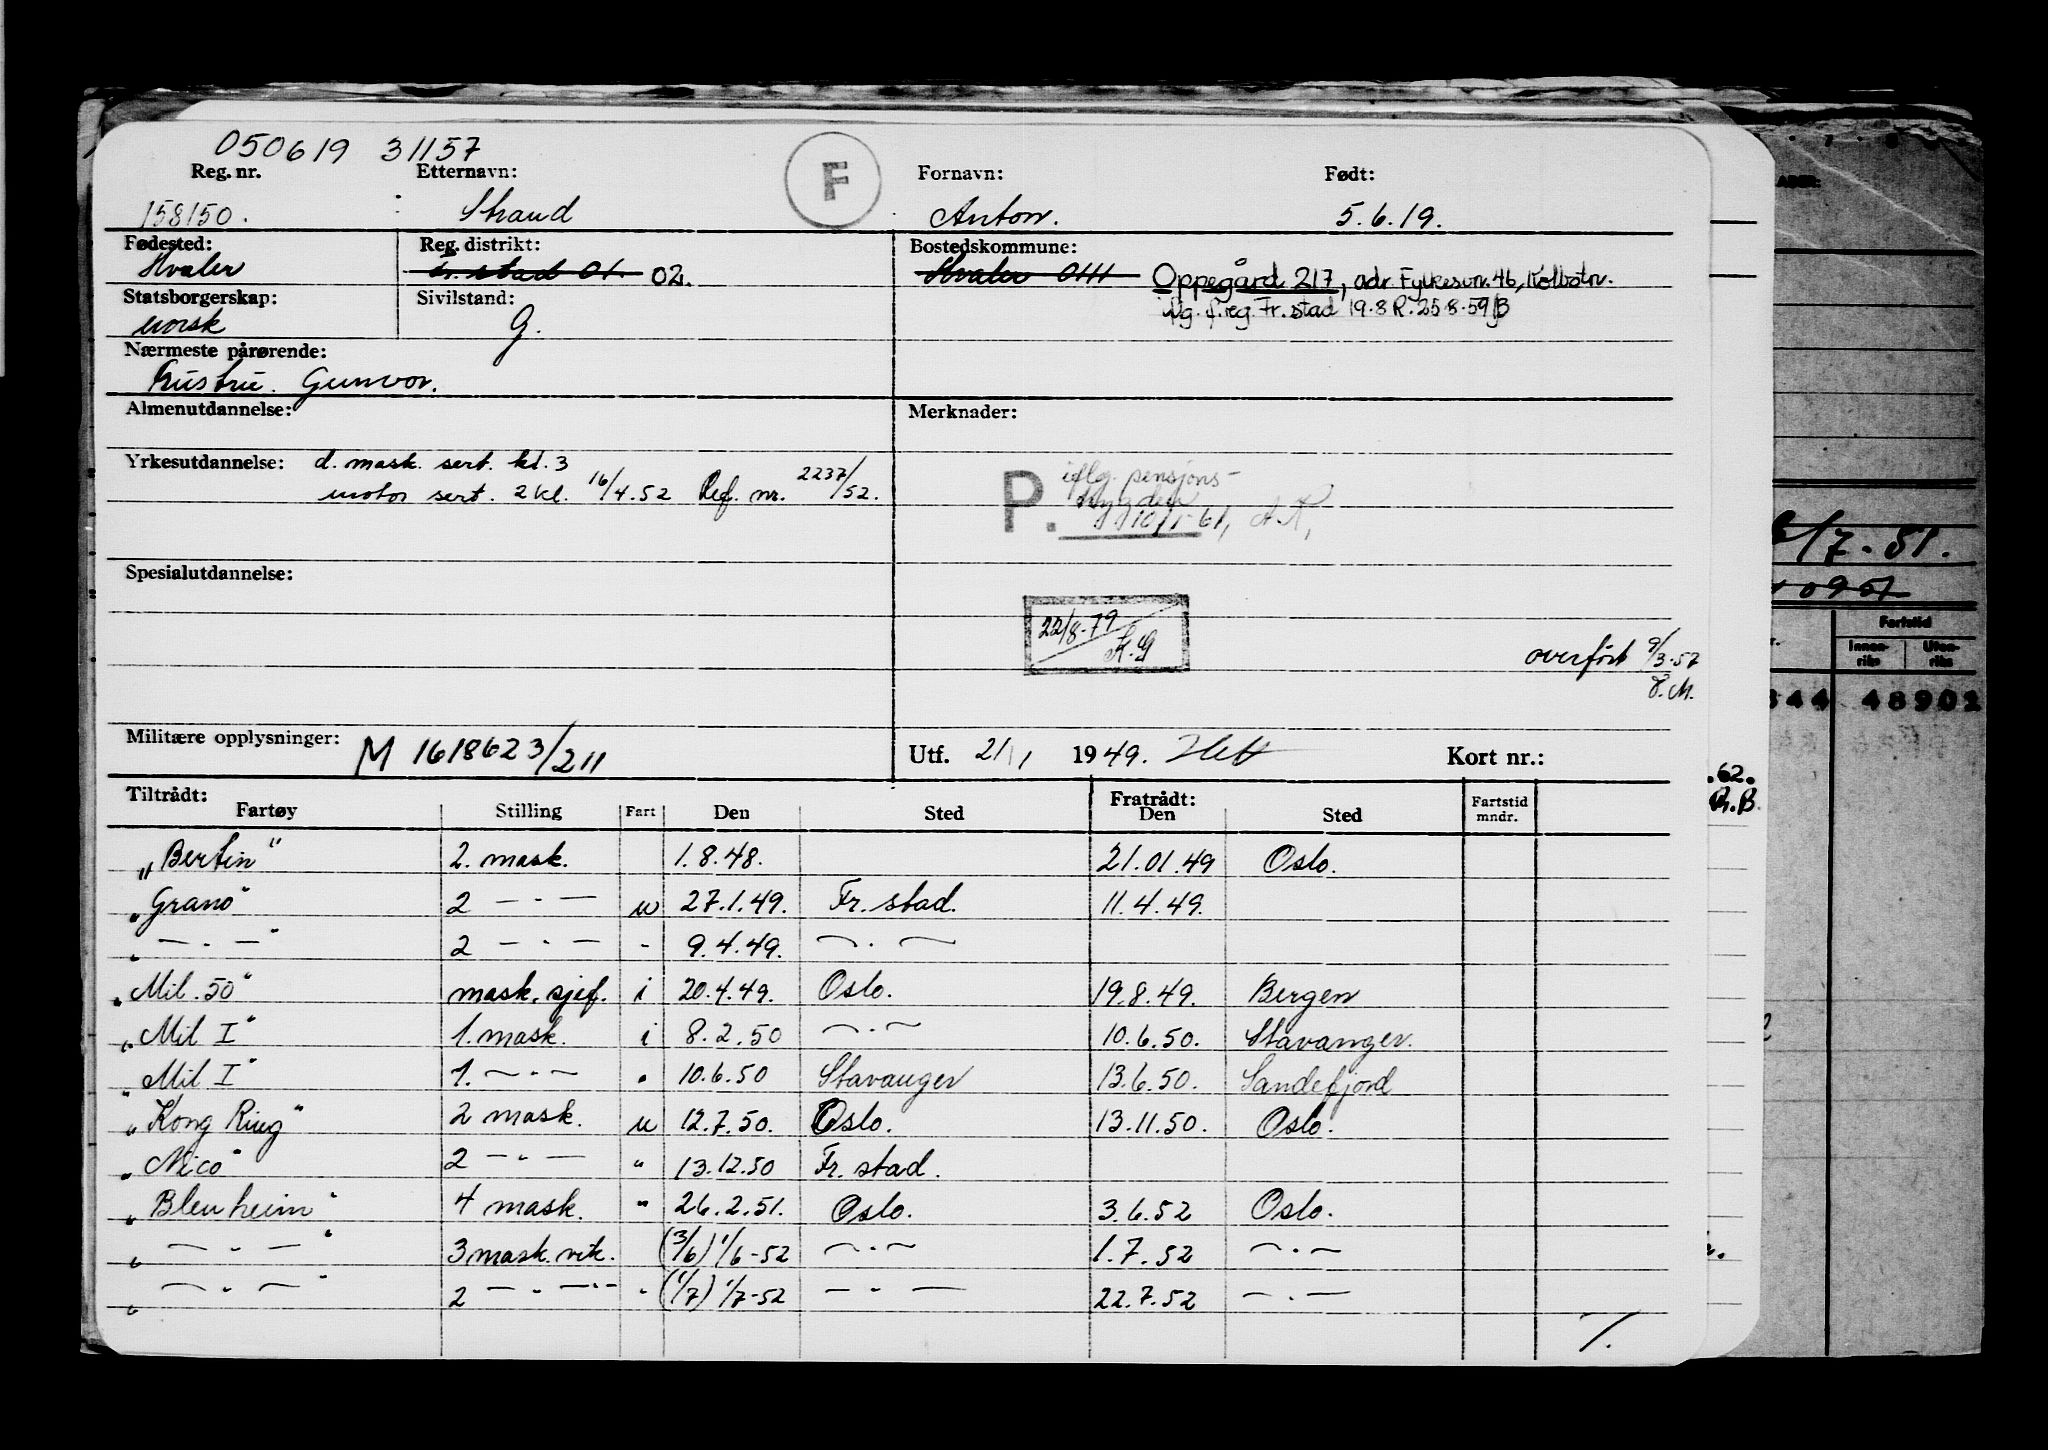 050619 31157
Reg. nr. Etternavn: F Fornavn: Født:
158150. Strand Anton. 5.6.19.
Fødested: Reg. distrikt: Bostedskommune:
Hvaler Fr. stad 01. 02. Hvaler 0111 Oppegård 217, adr. Fylkesvn. 46, Kolbotn.
Statsborgerskap: Sivilstand: ifg. f.reg. Fr. stad 19.8 R. 25.8.59
norsk G.
Nærmeste pårørende:
hustru. Gunvor.
Almenutdannelse: Merknader:
Yrkesutdannelse: d. mask. sert. kl. 3
motor sert. 2 kl. 16/4.52 Ref. nr. 2237/52.
P. iflg. pensjons-
trygden
10/1-61, A.K,
Spesialutdannelse:
22/8-79
K.G
overført 9/3-57
Militære opplysninger: M 1618623/211 Utf. 21/1 1949. Kort nr.:
Tiltrådt: Fratrådt:
Fartøy Stilling Fart Den Sted Den Sted Fartstid mndr.
„Bertin" 2. mask. 1.8.48. 21.01.49 Oslo.
„Grano" 2 — " — u 27.1.49. Fr. stad. 11.4.49.
„ — " — " 2 — " — " 9.4.49. — " —
„Mil. 50" mask. sjef. i 20.4.49. Oslo. 19.8.49. Bergen
„Mil I" 1. mask. i 8.2.50 — " — 10.6.50. Stavanger.
„Mil I" 1. — " — " 10.6.50 Stavanger 13.6.50. Sandefjord
„Kong Ring" 2 mask. u 12.7.50. Oslo. 13.11.50. Oslo.
„Nico" 2 — " — " 13.12.50 Fr. stad.
„Blenheim" 4 mask. " 26.2.51. Oslo. 3.6.52 Oslo.
„ — " — " 3 mask. vik. (3/6) 1/6-52 — " — 1.7.52 — " —
„ — " — " 2 — " — " — " (1/7) 1/7-52 — " — 22.7.52 — " —
/.
6/7-51.
Fartstid
Innen-riks Uten-riks
344 48902
.62.
R.B.